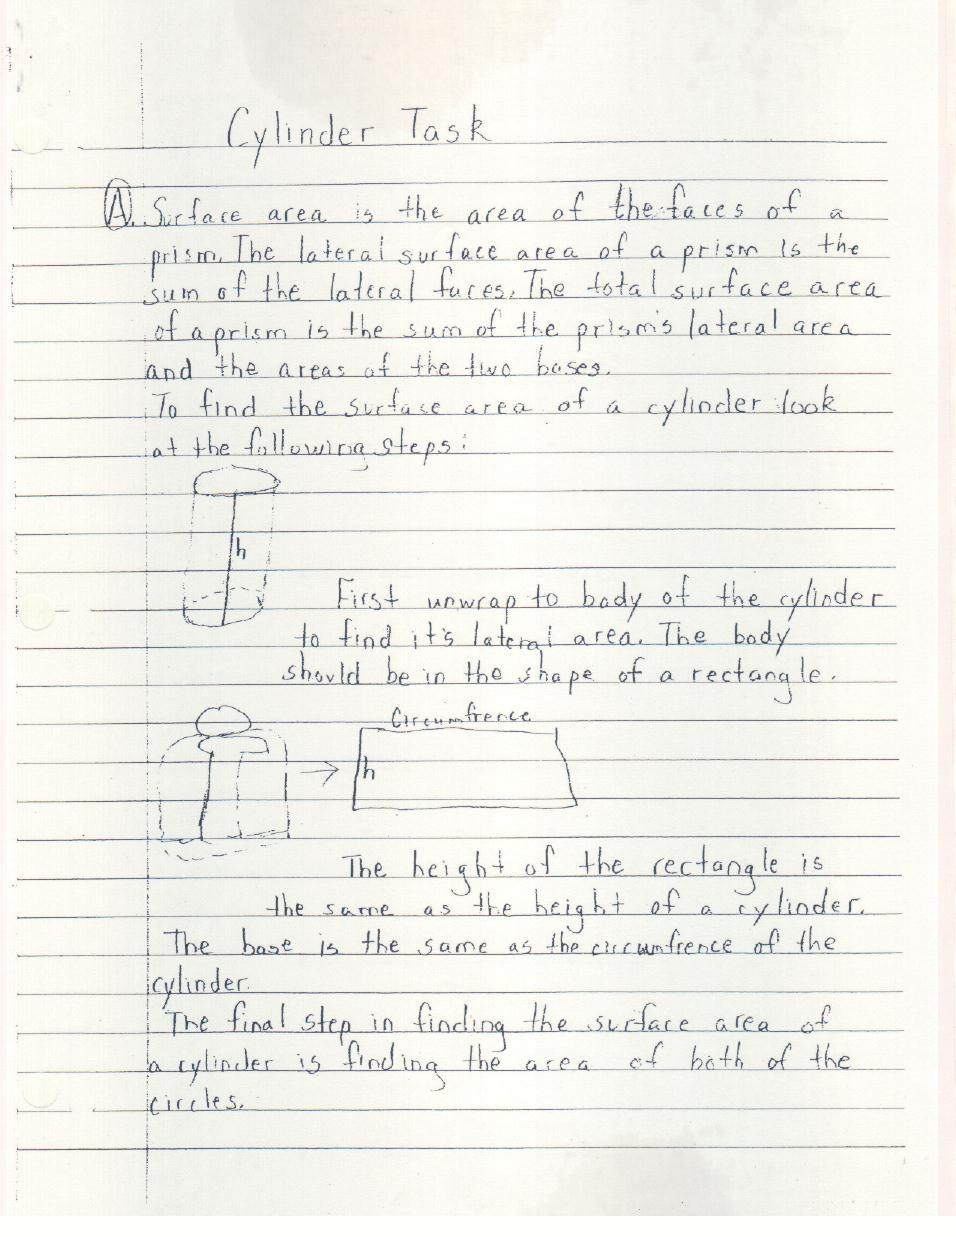 Cylinder Task
A. Surface area is the area of the faces of a
prism. The lateral surface area of a prism is the
sum of the lateral faces. The total surface area
of a prism is the sum of the prism's lateral area
and the areas of the two bases.
To find the surface area of a cylinder look
at the following steps:
h
First unwrap to body of the cylinder
to find it's lateral area. The body
should be in the shape of a rectangle.
Circumfrence
h
The height of the rectangle is
the same as the height of a cylinder.
The base is the same as the circumfrence of the
cylinder.
The final step in finding the surface area of
a cylinder is finding the area of both of the
circles.